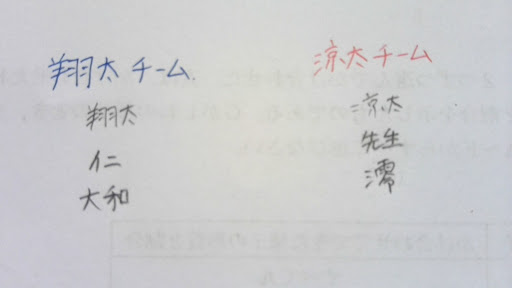 翔太チーム
翔太
仁
大和
涼太チーム
涼太
先生
澪